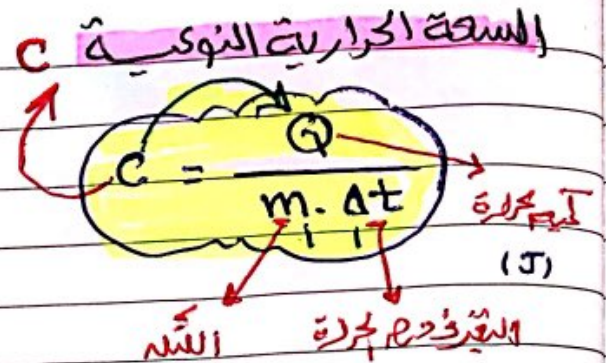 السعة الحرارية النوعية C
C = Q / m . Δt
كمية حرارة
(J)
الكتلة
التغير في درجة الحرارة